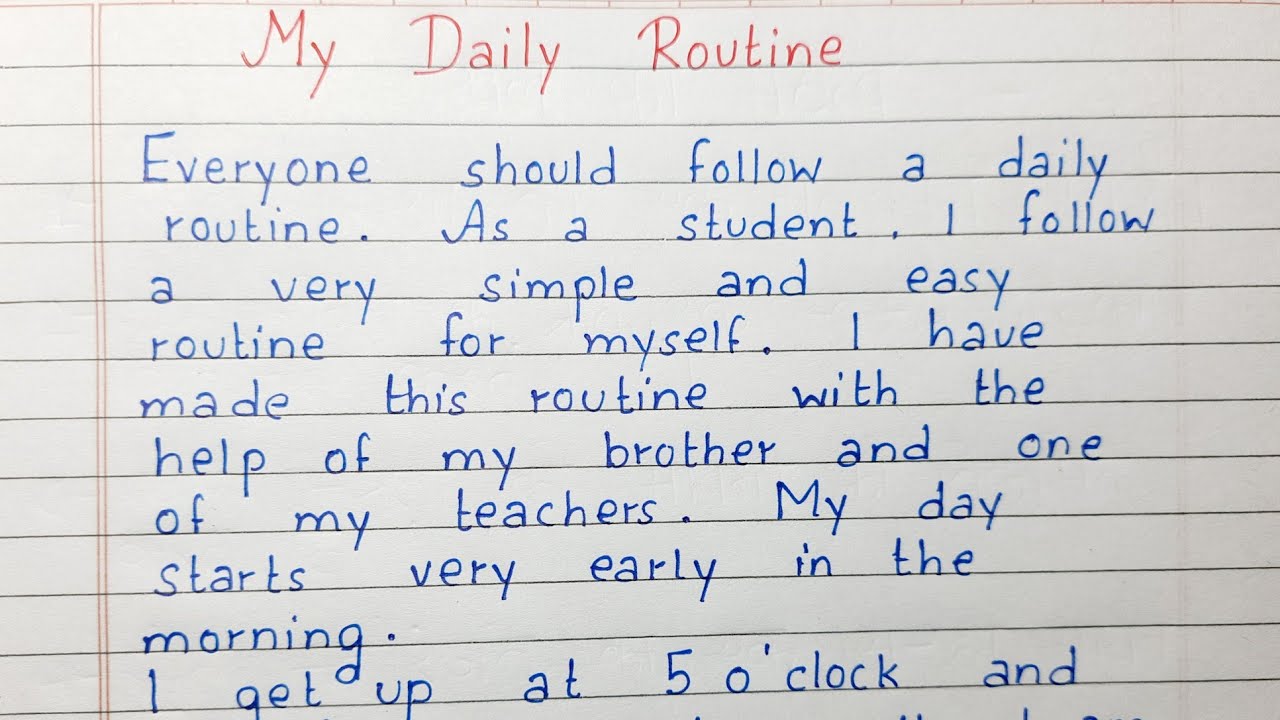 My Daily Routine
Everyone should follow a daily
routine. As a student, I follow
a very simple and easy
routine for myself. I have
made this routine with the
help of my brother and one
of my teachers. My day
starts very early in the
morning.
I get up at 5 o'clock and